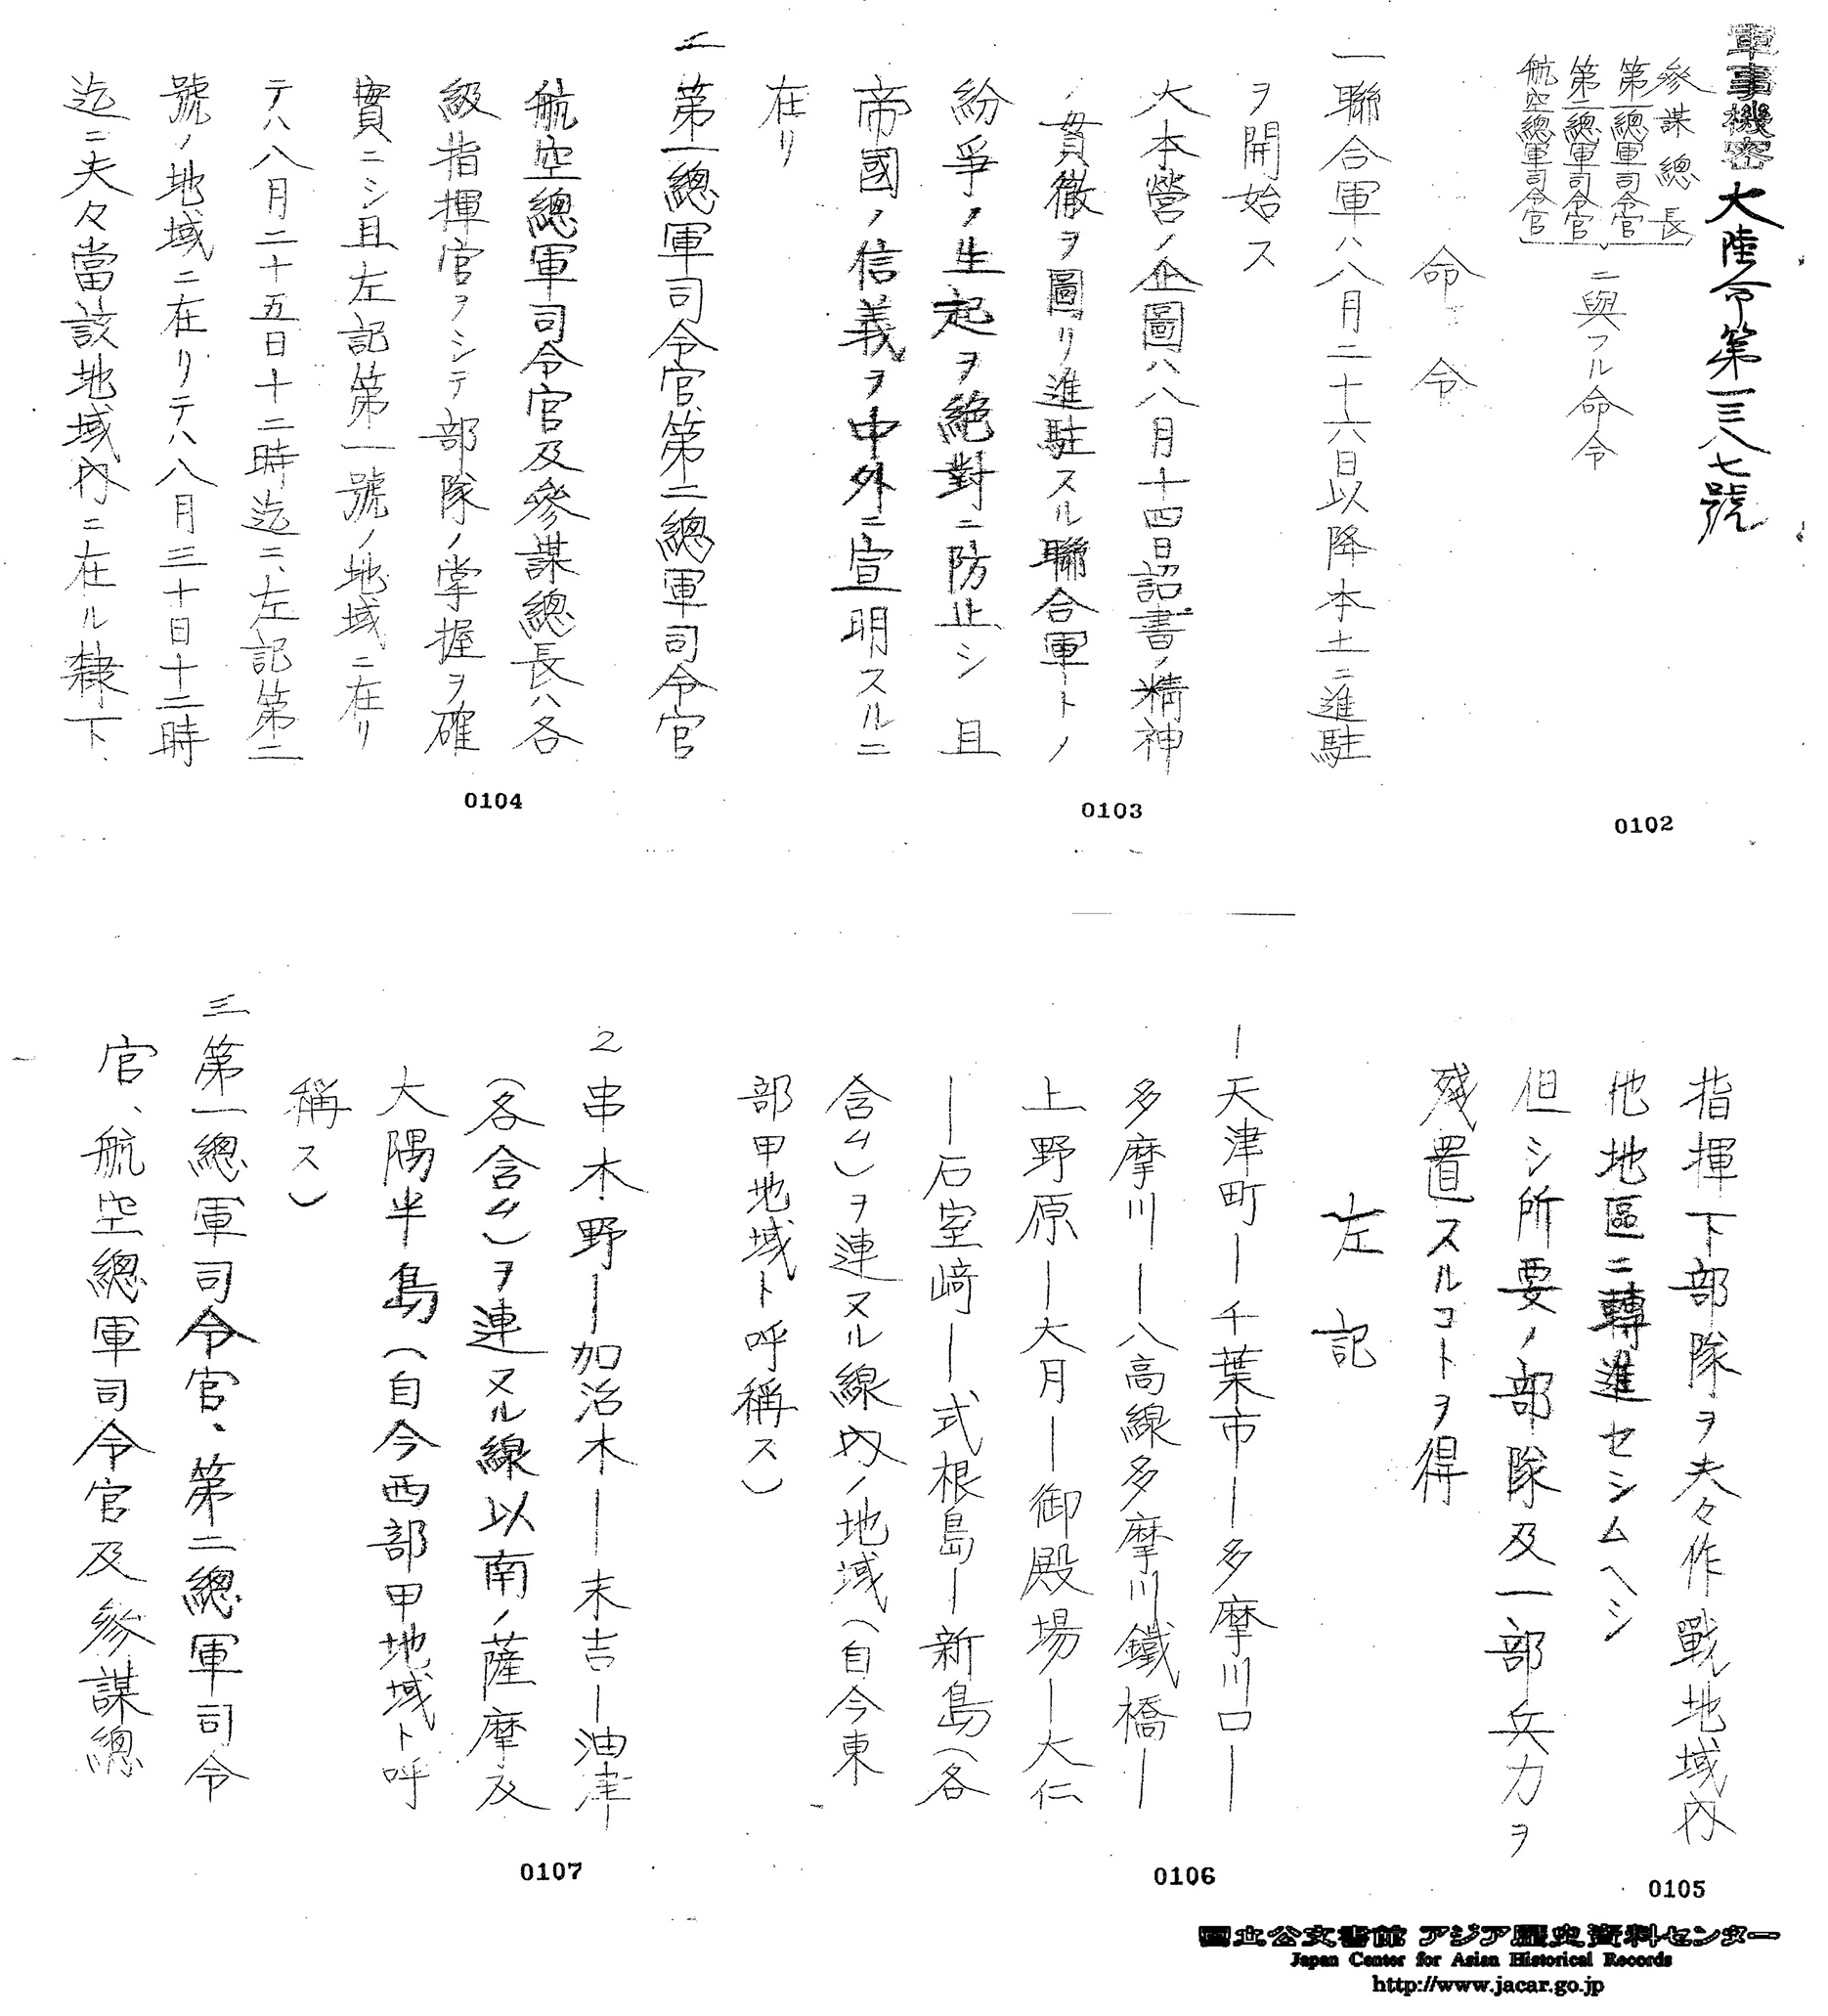 軍事機密
大陸令第一三八七號
參謀總長
第一總軍司令官
第二總軍司令官
航空總軍司令官
ニ與フル命令
命令
一聯合軍ハ八月二十六日以降本土ニ進駐
ヲ開始ス
大本營ノ企圖ハ八月十四日詔書ノ精神
ノ貫徹ヲ圖リ進駐スル聯合軍トノ
紛爭ノ生起ヲ絶對ニ防止シ且
帝國ノ信義ヲ中外ニ宣明スルニ
在リ
二第一總軍司令官第二總軍司令官
航空總軍司令官及參謀總長ハ各
級指揮官ヲシテ部隊ノ掌握ヲ確
實ニシ且左記第一號ノ地域ニ在リ
テハ八月二十五日十二時迄ニ、左記第二
號ノ地域ニ在リテハ八月三十日十二時
迄ニ夫々當該地域內ニ在ル隸下、
0102
0103
0104
指揮下部隊ヲ夫々作戰地域內
他地區ニ轉進セシムヘシ
但シ所要ノ部隊及一部兵力ヲ
殘置スルコトヲ得
左記
1天津町ー千葉市ー多摩川口ー
多摩川ー八高線多摩川鐵橋ー
上野原ー大月ー御殿場ー大仁
ー石室﨑ー式根島ー新島(各
含ム)ヲ連ヌル線內ノ地域(自今東
部甲地域ト呼稱ス)
2串木野ー加治木ー末吉ー油津
(各含ム)ヲ連ヌル線以南ノ薩摩及
大隅半島(自今西部甲地域ト呼
稱ス)
三第一總軍司令官、第二總軍司令
官、航空總軍司令官及參謀總
0105
0106
0107
国立公文書館 アジア歴史資料センター
Japan Center for Asian Historical Records
http://www.jacar.go.jp